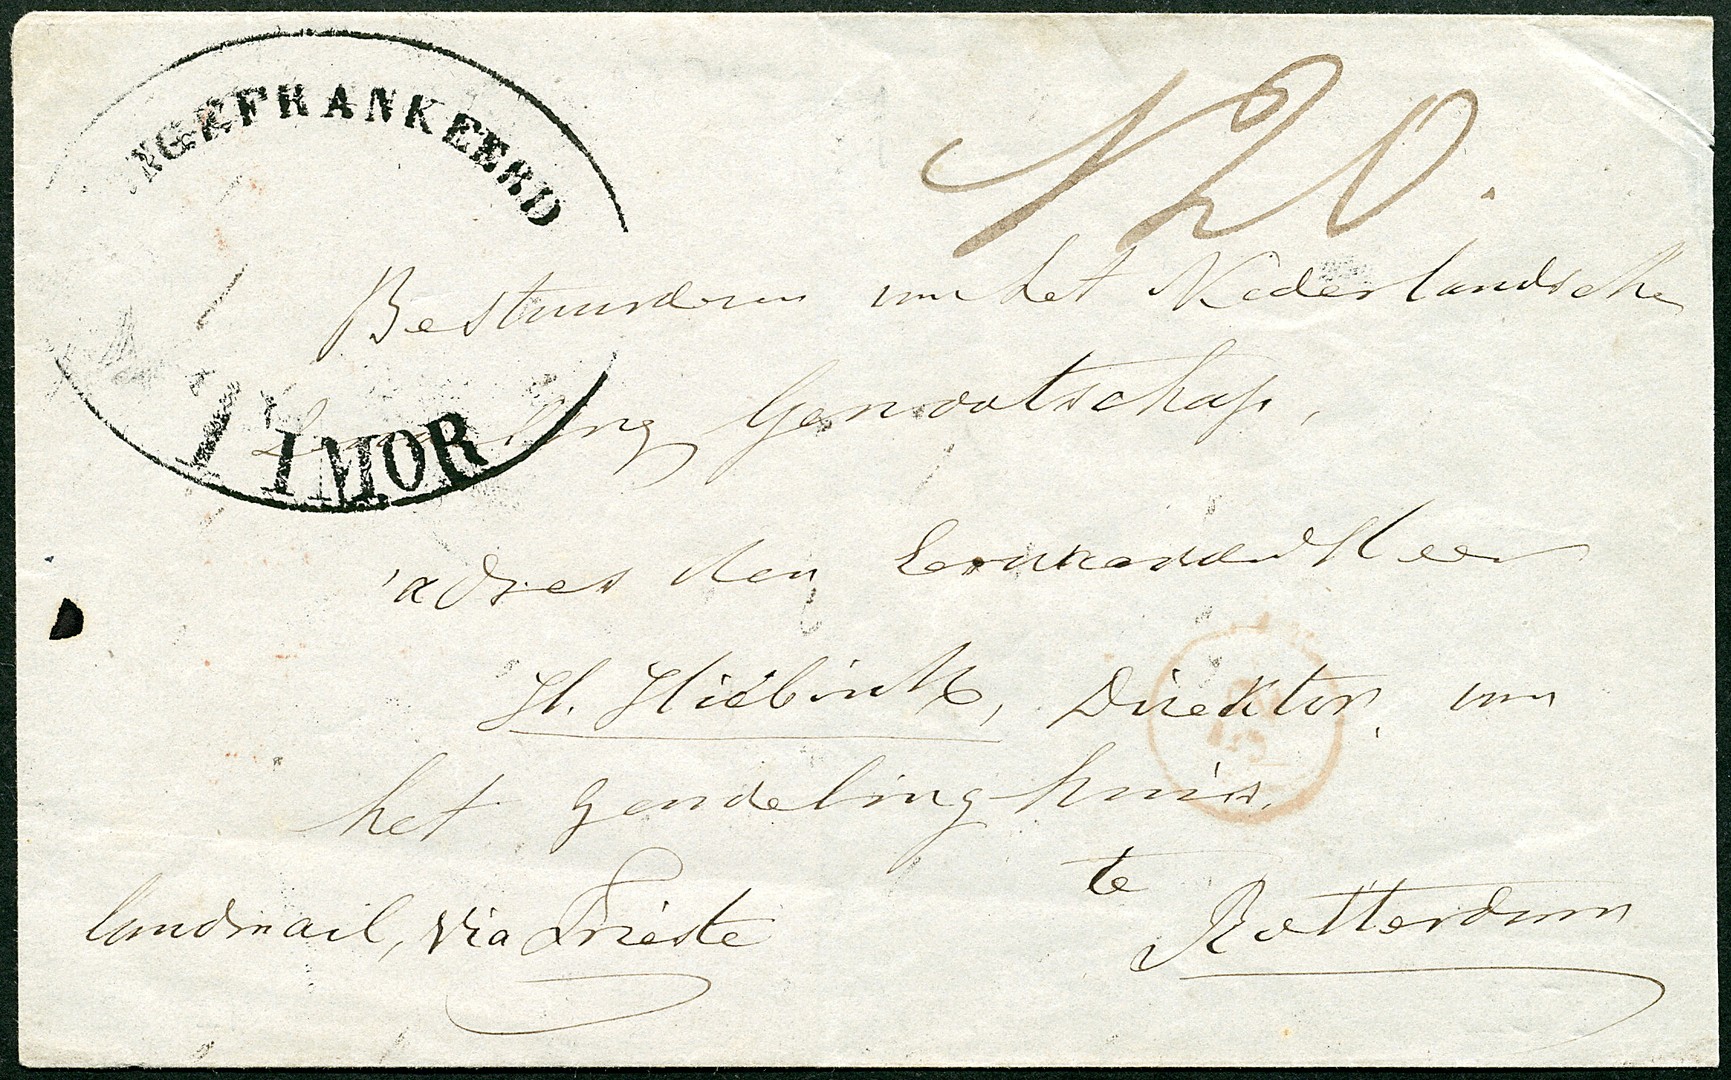 ONGEFRANKEERD
TIMOR
120.
Bestuurderen van het Nederlandsche
Zendeling Genootschap,
adres den Eerwaarden Heer
H. Hiebink, Direktor van
het Zendelinghuis.
te
Rotterdam
landmail, via Trieste